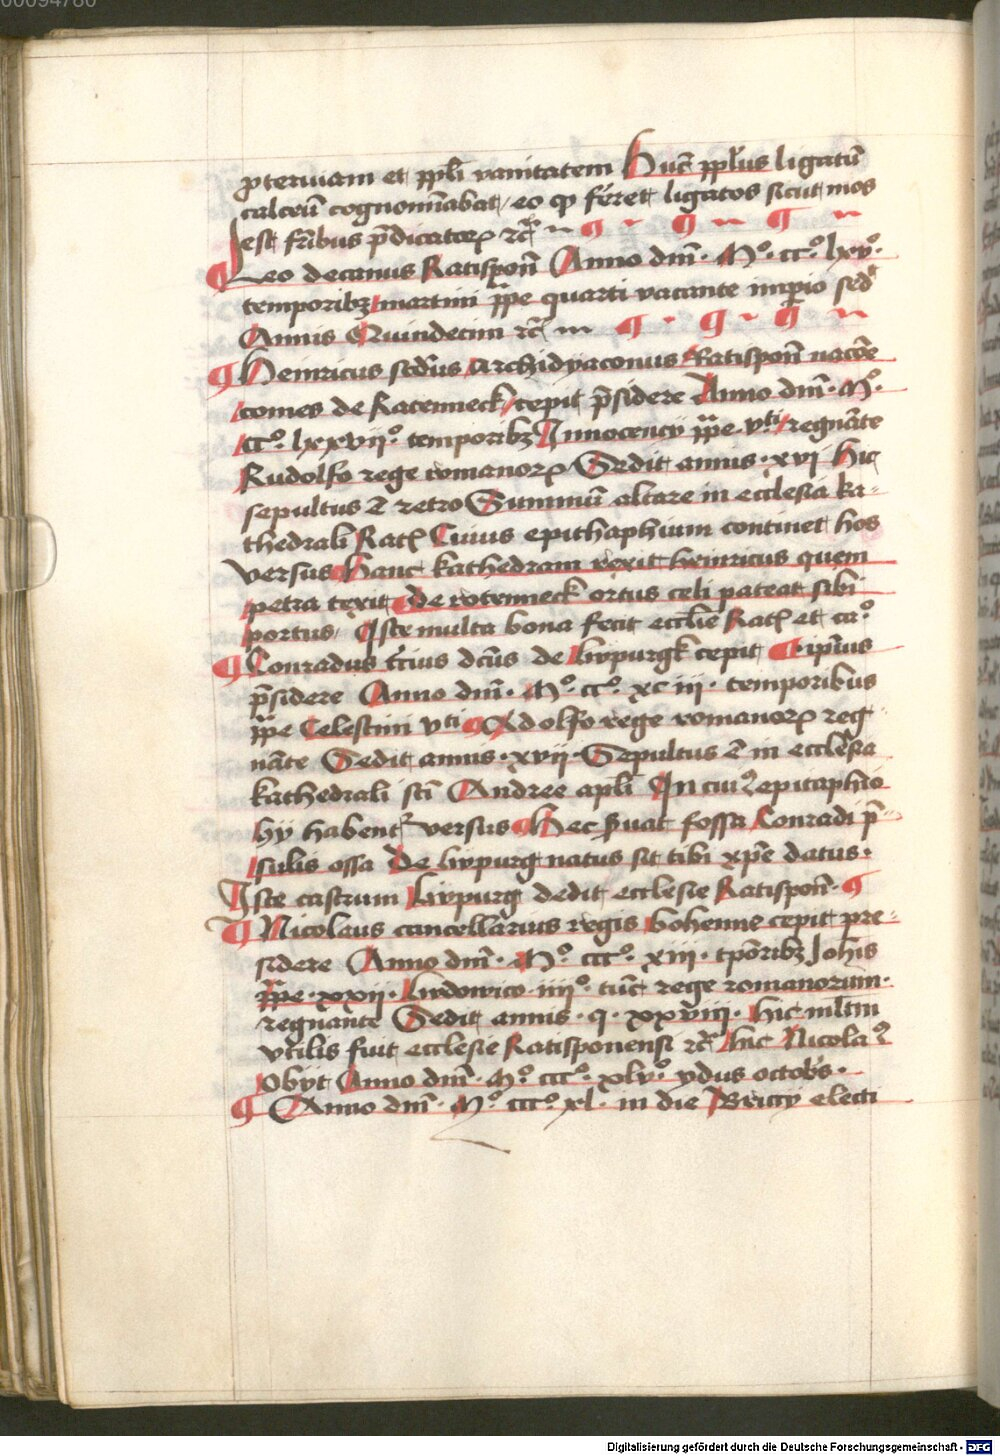 00094780
proteruiam et ppl̄i vanitatem Hunc ppl̄us ligatū
calceū cognomīabat / eo qͥ ferret ligatos sicut mos
est fr̄ibus p̄dicatoꝝ ⁊cͣ
Leo decanus Ratisponn̄ Anno dm̄· M°· cc°· lxv°·
temporibꝫ martini pp̄e quarti vacante impio sedͭ
Annis Quindecim ⁊cͣ
¶ Heinricus scd̄us Archidyaconus Ratisponn̄ nac̄oe
comes de Rateneck cepit p̄sidere Anno dm̄· M°·
cc°· lxxvij° temporibꝫ Innocencij pp̄e vͭi / regnāte
Rudolfo rege romanoꝝ Sedit annis · xvj Hic
sepultus ē retro Summū altare in ecclesia ka-
thedrali Ratꝭ Cuius epithaphium continet hos
versus Hanc kathedram rexit heinricus quem
petra texit De rotenneck ortus celi pateat sibi
portus / Iste multa bona fecit eccl̄ie Ratꝭ et ca°
¶ Conradus t̄cius dc̄us de lwpurgk cepit ¶ ip̄ius
p̄sidere Anno dm̄· M°· cc°· xc iij · temporibus
pp̄e Celestini vͭi ¶ Adolfo rege romanoꝝ reg-
nāte Sedit annis · xvij · Sepultus ē in ecclesia
kathedrali sc̄i Andree apl̄i In cuiꝰ epitaphio
hy habentͬ versus ¶ Hec s̄uat fossa Conradi p̄-
sulis ossa De lwpurg natus sit tibi xp̄e datus ·
Iste castrum lwpurg dedit ecclesie Ratisponn̄ · ¶
¶ Nicolaus cancellarius regis bohemie cepit pre-
sidere Anno dm̄· M°· ccc°· xiij · tpōribꝫ Johīs
pp̄e · xxij · ludowico iiij°· tūc rege romanorum ·
regnante Sedit annis · q · xxviij · hic mltm
vtilis fuit ecclesie Ratisponensi ⁊cͣ hic Nicolaꝰ
obyt Anno dm̄· M°· ccc°· xlv°· ydus octob̄s ·
¶ Anno dm̄· M°· ccc°· xl · in die Briccy electi
Digitalisierung gefördert durch die Deutsche Forschungsgemeinschaft - DFG